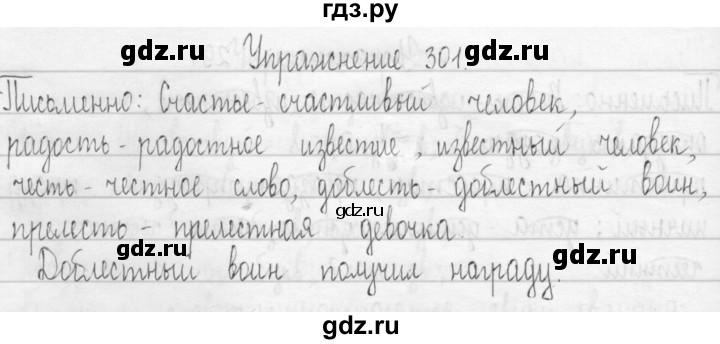 гдз.ру
gdz.ru gdz.ru
Упражнение 301.
Письменно: Счастье - счастливый человек,
радость - радостное известие, известный человек,
честь - честное слово, доблесть - доблестный воин,
gdz.ru
прелесть - прелестная девочка.
gdz.ru gdz.ru
Доблестный воин получил награду.
gdz.ru